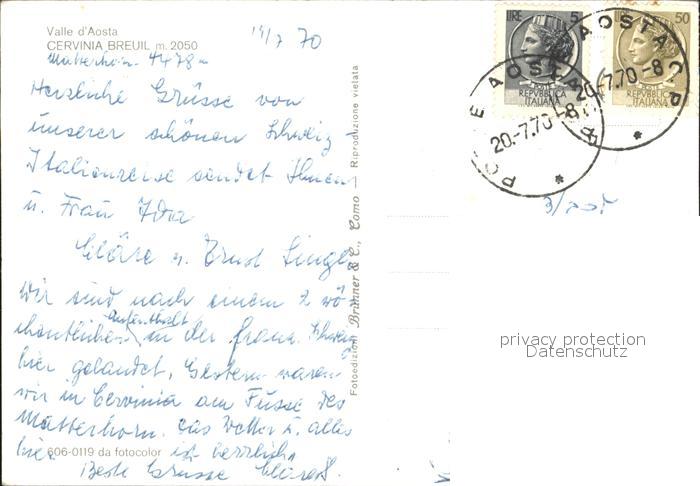 Valle d'Aosta
CERVINIA BREUIL m. 2050
19/7 70
Matterhorn 4478 m
Herzliche Grüsse von
unserer schönen Schweiz-
Italienreise sendet Ihnen
u. Frau Ida
Kläre u. Ernst
Wir sind nach einem 2 wö
chentlichen Aufenthalt in der franz. Schweiz
hier gelandet. Gestern waren
wir in Cervinia am Fusse des
Matterhorn. Das Wetter u. alles
hier ist herrlich.
Beste Grüsse
606-0119 da fotocolor
Fotoedizioni Brunner & C., Como — Riproduzione vietata
LIRE 5
POSTE
REPVBBLICA
ITALIANA
LIRE 50
REPVBBLICA
ITALIANA
POSTE AOSTA
20.-7.70-8
AOSTA
20.-7.70-8
privacy protection
Datenschutz